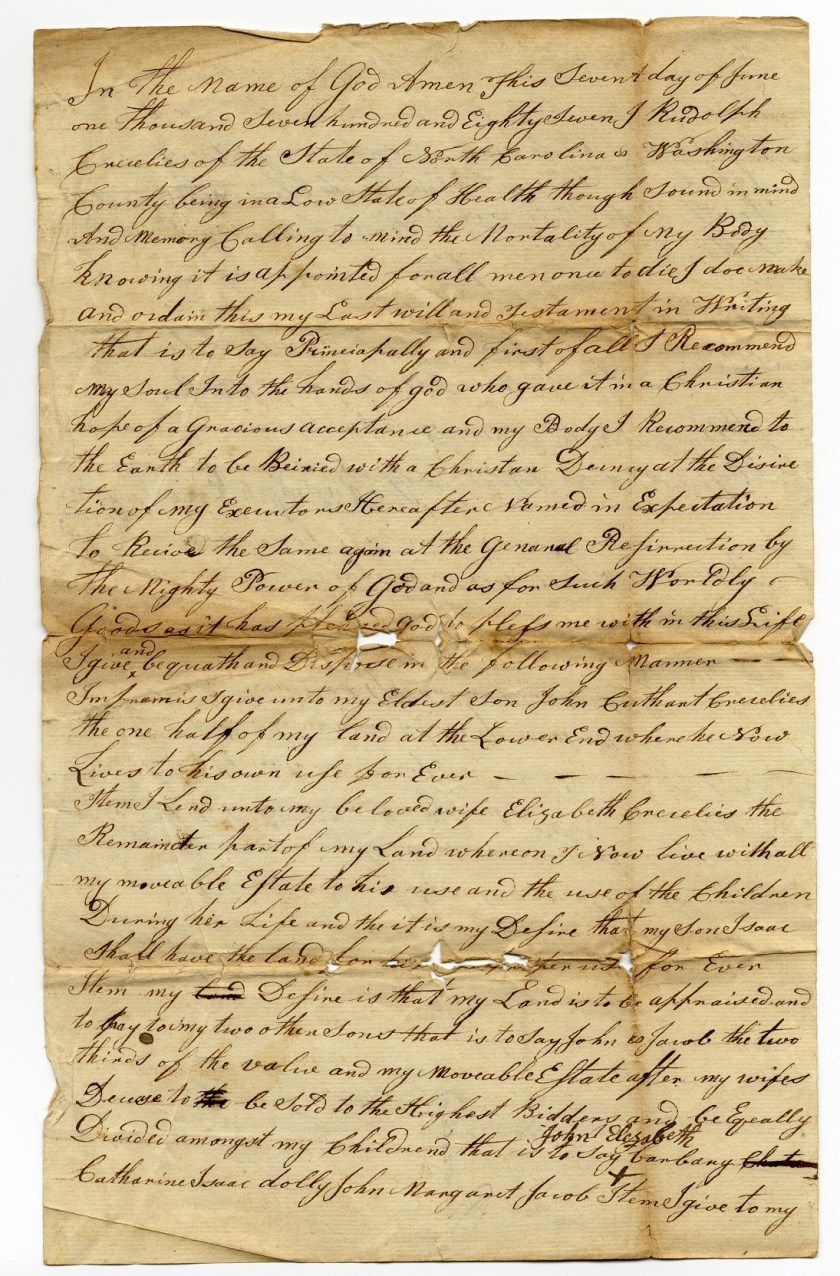 In The Name of God Amen This Sevent day of June
one thousand Seven hundred and Eighty Seven I Rudolph
Crecelies of the State of North Carolina & Washington
County being in a Low State of Health though Sound in mind
And Memory Calling to mind the Mortality of My Body
knowing it is appointed for all men once to die I doe make
and ordain this my Last will and Testament in Writing
that is to Say Principally and first of all I Recommend
my Soul Into the hands of god who gave it in a Christian
hope of a Gracious acceptance and my Body I Recommend to
the Earth to be Beiried with a Christan Decency at the Disire
tion of my Executors Hereafter Named in Expectation
to Recive the Same again at the Genaral Resirrection by
the Mighty Power of God and as for Such Worldly
Goods as it has pleased god to pless me with in this Life
I give and bequath and Dispose in the following Manner — —
Impramis I give unto my Eldest Son John Cuthart Crecelies
the one half of my land at the Lower End where he Now
Lives to his own use for Ever — — — — —
Item I Lend unto my beloved wife Elizabeth Crecelies the
Remainder part of my Land whereon I Now live with all
my moveable Estate to his use and the use of the Children
During her Life and the it is my Desire that my Son Isaac
Shall have the land for proper use for Ever
Item my Desire is that my Land is to be appraised and
to pay to my two other Sons that is to Say John & Jacob the two
thirds of the value and my Moveable Estate after my wifes
Decese to be Sold to the Highest Bidders and be Equally
Divided amongst my Childrend that is to Say John Elezabeth barbary
Catharine Isaac dolly John Margaret Jacob Item I give to my